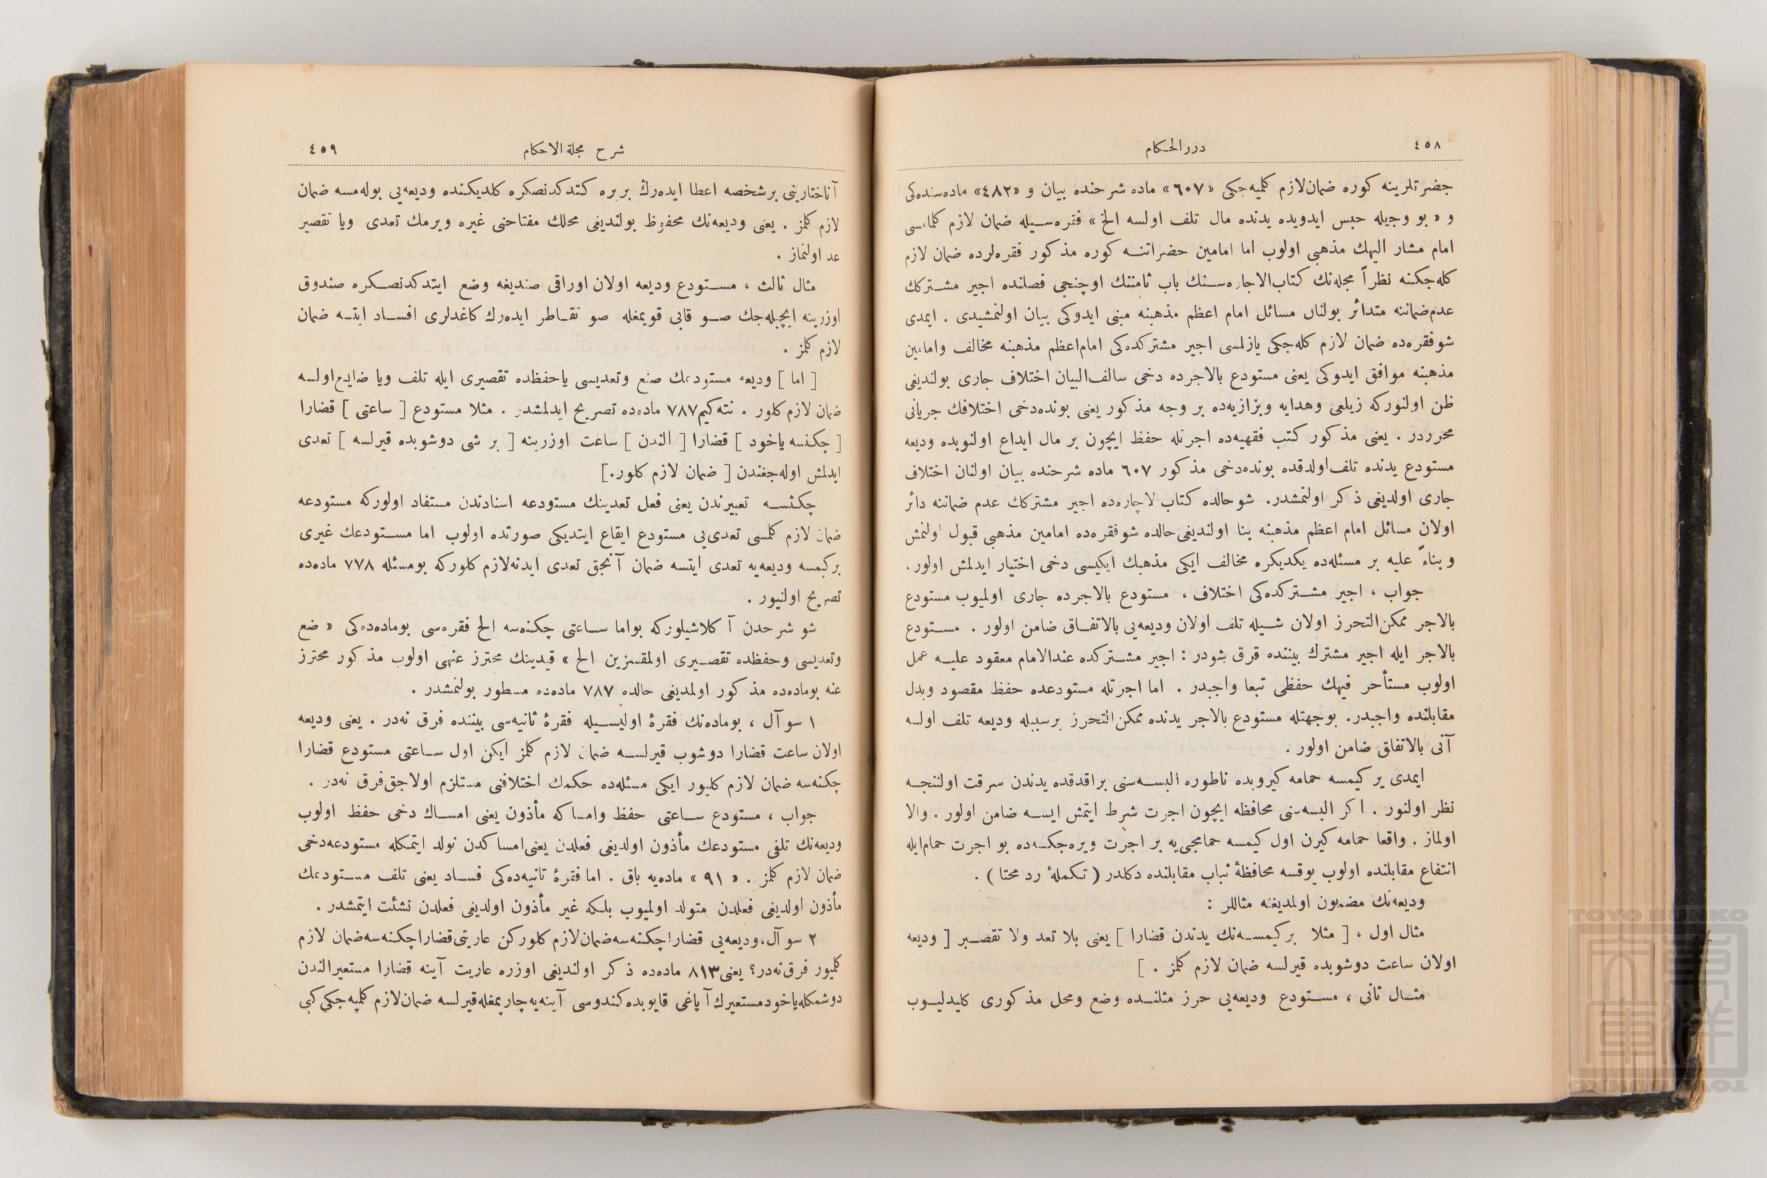 ٤٥٨
دررالحكام
جضرتلرينه كوره ضمان لازم كلميه‌جكى «٦٠٧» ماده شرحنده بيان و «٤٨٢» ماده‌سنده‌كى
و « بو وجيله حبس ايدوبده يدنده مال تلف اولسه الخ » فقره‌سيله ضمان لازم كلمامسى
امام مشار اليهك مذهبى اولوب اما امامين حضراتنه كوره مذكور فقره‌لرده ضمان لازم
كله‌جكنه نظرآ مجله‌نك كتاب‌الاجاره‌سنك باب ثامننك اوچنجى فصلنده اجير مشتركك
عدم‌ضماننه متدائر بولنان مسائل امام اعظم مذهبنه مبنى ايدوكى بيان اولنمشيدى . ايمدى
شوفقره‌ده ضمان لازم كله‌جكى يازلمسى اجير مشتركده‌كى امام‌اعظم مذهبنه مخالف وامامين
مذهبنه موافق ايدوكى يعنى مستودع بالاجرده دخى سالف‌البيان اختلاف جارى بولنديغى
ظن اولنوركه زيلعى وهدايه وبزازيه‌ده بر وجه مذكور يعنى بونده‌دخى اختلافك جريانى
محرردر . يعنى مذكور كتب فقهيه‌ده اجرتله حفظ ايچون بر مال ايداع اولنوبده وديعه
مستودع يدنده تلف‌اولدقده بونده‌دخى مذكور ٦٠٧ ماده شرحنده بيان اولنان اختلاف
جارى اولديغى ذكر اولنمشدر. شوحالده كتاب‌لاجاره‌ده اجير مشتركك عدم ضماننه دائر
اولان مسائل امام اعظم مذهبنه بنا اولنديغى‌حالده شوفقره‌ده امامين مذهبى قبول اولنمش
و بناءً عليه بر مسئله‌ده يكديكره مخالف ايكى مذهبك ايكيسى دخى اختيار ايدلمش اولور.
جواب ، اجير مشتركده‌كى اختلاف ، مستودع بالاجرده جارى اولميوب مستودع
بالاجر ممكن‌التحرز اولان شيله تلف اولان وديعه‌يى بالاتفاق ضامن اولور . مستودع
بالاجر ايله اجير مشترك بيننده فرق شودر : اجير مشتركده عندالامام معقود عليه عمل
اولوب مستأجر فيهك حفظى تبعا واجبدر . اما اجرتله مستودعده حفظ مقصود وبدل
مقابلنده واجبدر. بوجهتله مستودع بالاجر يدنده ممكن‌التحرز برسببله وديعه تلف اولسه
آنى بالاتفاق ضامن اولور .
ايمدى بر كيمسه حمامه كيروبده ناطوره البسه‌سنى براقدقده يدندن سرقت اولنسه
نظر اولنور . اكر البسه‌سنى محافظه ايچون اجرت شرط ايتمش ايسه ضامن اولور . والا
اولماز . واقعا حمامه كيرن اول كيمسه حمامجى‌يه بر اجرت ويره‌جكسه‌ده بو اجرت حمام‌ايله
انتفاع مقابلنده اولوب يوقسه محافظهٔ ثياب مقابلنده دكلدر ( تكملهٔ رد محتا ) .
وديعه‌نك مضمون اولمديغنه مثاللر :
مثال اول ، [ مثلا بركيمسه‌نك يدندن قضارا ] يعنى بلا تعد ولا تقصير [ وديعه
اولان ساعت دوشوبده قيرلسه ضمان لازم كلمز . ]
مثال ثانى ، مستودع وديعه‌يى حرز مثلنده وضع ومحل مذكورى كليدليوب
٤٥٩
شرح مجلة الاحكام
آناختارينى برشخصه اعطا ايده‌رك بر يره كتدكدنصكره كلديكنده وديعه‌يى بوله‌مسه ضمان
لازم كلمز . يعنى وديعه‌نك محفوظ بولنديغى محلك مفتاحنى غيره ويرمك تعدى ويا تقصير
عد اولنماز .
مثال ثالث ، مستودع وديعه اولان اوراقى صنديغه وضع ايتدكدنصكره صندوق
اوزرينه ايچيله‌جك صو قابى قويمغله صو تقاطر ايده‌رك كاغدلرى افساد ايتسه ضمان
لازم كلمز .
[ اما ] وديعه مستودعك صنع وتعديسى ياحفظده تقصيرى ايله تلف ويا ضايع‌اولسه
ضمان لازم كلور . نته‌كيم٧٨٧ ماده‌ده تصريح ايدلمشدر . مثلا مستودع [ ساعتى ] قضارا
[ چكنسه ياخود ] قضارا [ الندن ] ساعت اوزرينه [ بر شى دوشوبده قيرلسه ] تعدى
ايدلمش اوله‌جغندن [ ضمان لازم كلور.]
چكنسه تعبيرندن يعنى فعل تعدينك مستودعه اسنادندن مستفاد اولوركه مستودعه
ضمان لازم كلمسى تعدى‌يى مستودع ايقاع ايتديكى صورتده اولوب اما مستودعك غيرى
بركيمسه وديعه‌يه تعدى ايتسه ضمان آنجق تعدى ايدنه‌لازم كلوركه بومسئله ٧٧٨ ماده‌ده
تصريح اولنيور .
شو شرحدن آكلاشيلوركه بواما ساعتى چكنه‌سه الخ فقره‌سى بوماده‌ده‌كى « صنع
وتعديسى وحفظده تقصيرى اولمقسزين الخ » قيدينك محترز عنهى اولوب مذكور محترز
عنه بوماده‌ده مذكور اولمديغى حالده ٧٨٧ ماده‌ده مسطور بولنمشدر .
١ سوآل ، بوماده‌نك فقرۀ اوليسيله فقرۀ ثانيه‌سى بيننده فرق نه‌در . يعنى وديعه
اولان ساعت قضارا دوشوب قيرلسه ضمان لازم كلمز ايكن اول ساعتى مستودع قضارا
چكنه‌سه ضمان لازم كليور ايكى مسئله‌ده حكمك اختلافنى مستلزم اولاجق‌فرق نه‌در .
جواب ، مستودع ساعتى حفظ وامساكه مأذون يعنى امساك دخى حفظ اولوب
وديعه‌نك تلفى مستودعك مأذون اولديغى فعلدن يعنى‌امساكدن تولد ايتمكله مستودعه‌دخى
ضمان لازم كلمز . « ٩١ » ماده‌يه باق . اما فقرۀ ثانيه‌ده‌كى فساد يعنى تلف مستودعك
مأذون اولديغى فعلدن متولد اولميوب بلكه غير مأذون اولديغى فعلدن نشئت ايتمشدر .
٢ سوآل،وديعه‌يى قضارا چكنه‌سه‌ضمان‌لازم كلوركن عاريتى‌قضاراچكنه‌سه‌ضمان لازم
كلميور فرق‌نه‌در؟ يعنى٨١٣ ماده‌ده ذكر اولنديغى اوزره عاريت آينه قضارا مستعيرالندن
دوشمكله‌ياخودمستعيرك آياغى قايوبده‌كندوسى آينه‌يه‌چارپمغله‌قيرلسه ضمان‌لازم كلميه‌جكى كبى
TOYO BUNKO